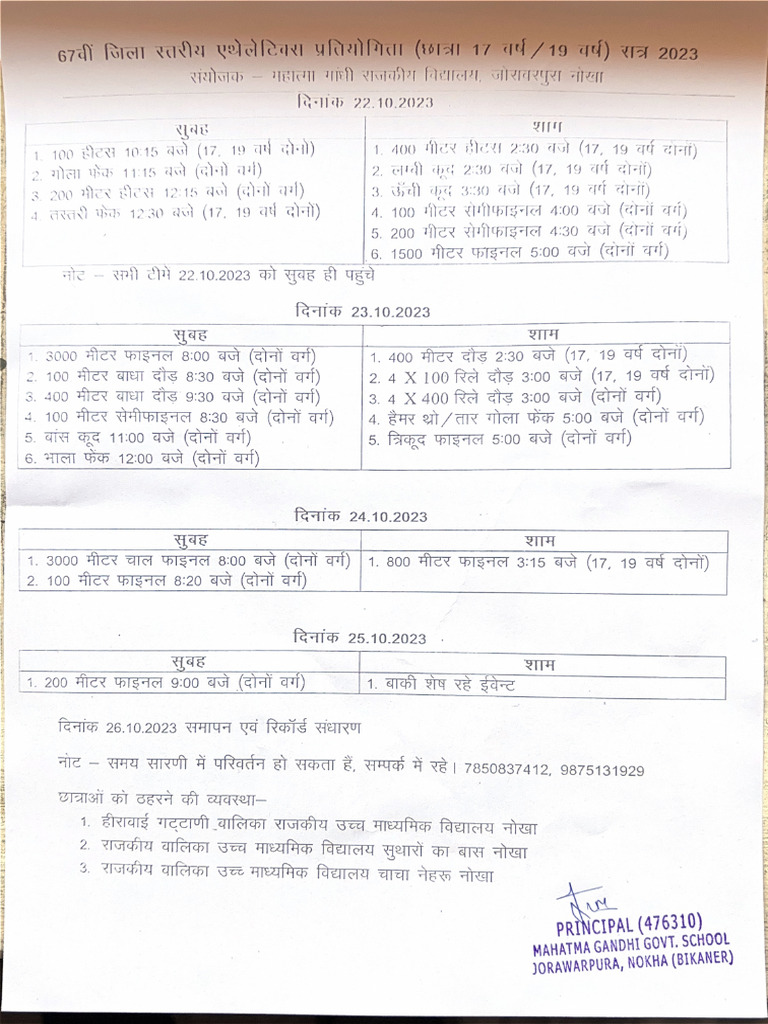 67वीं जिला स्तरीय एथेलेटिक्स प्रतियोगिता (छात्रा 17 वर्ष/19 वर्ष) सत्र 2023
संयोजक – महात्मा गांधी राजकीय विद्यालय, जोरावरपुरा नोखा
दिनांक 22.10.2023
सुबह
1. 100 हीटस 10:15 बजे (17, 19 वर्ष दोनों)
2. गोला फेंक 11:15 बजे (दोनों वर्ग)
3. 200 मीटर हीटस 12:15 बजे (दोनों वर्ग)
4. तस्तरी फेंक 12:30 बजे (17, 19 वर्ष दोनों)
शाम
1. 400 मीटर हीटस 2:30 बजे (17, 19 वर्ष दोनों)
2. लम्बी कूद 2:30 बजे (17, 19 वर्ष दोनों)
3. ऊँची कूद 3:30 बजे (17, 19 वर्ष दोनों)
4. 100 मीटर सेमीफाइनल 4:00 बजे (दोनों वर्ग)
5. 200 मीटर सेमीफाइनल 4:30 बजे (दोनों वर्ग)
6. 1500 मीटर फाइनल 5:00 बजे (दोनों वर्ग)
नोट – सभी टीमे 22.10.2023 को सुबह ही पहुंचे
दिनांक 23.10.2023
सुबह
1. 3000 मीटर फाइनल 8:00 बजे (दोनों वर्ग)
2. 100 मीटर बाधा दौड़ 8:30 बजे (दोनों वर्ग)
3. 400 मीटर बाधा दौड़ 9:30 बजे (दोनों वर्ग)
4. 100 मीटर सेमीफाइनल 8:30 बजे (दोनों वर्ग)
5. बांस कूद 11:00 बजे (दोनों वर्ग)
6. भाला फेंक 12:00 बजे (दोनों वर्ग)
शाम
1. 400 मीटर दौड़ 2:30 बजे (17, 19 वर्ष दोनों)
2. 4 X 100 रिले दौड़ 3:00 बजे (17, 19 वर्ष दोनों)
3. 4 X 400 रिले दौड़ 3:00 बजे (दोनों वर्ग)
4. हैमर थ्रो/तार गोला फेंक 5:00 बजे (दोनों वर्ग)
5. त्रिकूद फाइनल 5:00 बजे (दोनों वर्ग)
दिनांक 24.10.2023
सुबह
1. 3000 मीटर चाल फाइनल 8:00 बजे (दोनों वर्ग)
2. 100 मीटर फाइनल 8:20 बजे (दोनों वर्ग)
शाम
1. 800 मीटर फाइनल 3:15 बजे (17, 19 वर्ष दोनों)
दिनांक 25.10.2023
सुबह
1. 200 मीटर फाइनल 9:00 बजे (दोनों वर्ग)
शाम
1. बाकी शेष रहे ईवेन्ट
दिनांक 26.10.2023 समापन एवं रिकॉर्ड संधारण
नोट – समय सारणी में परिवर्तन हो सकता हैं, सम्पर्क में रहे। 7850837412, 9875131929
छात्राओं को ठहरने की व्यवस्था–
1. हीराबाई गट्टाणी बालिका राजकीय उच्च माध्यमिक विद्यालय नोखा
2. राजकीय बालिका उच्च माध्यमिक विद्यालय सुथारों का बास नोखा
3. राजकीय बालिका उच्च माध्यमिक विद्यालय चाचा नेहरू नोखा
PRINCIPAL (476310)
MAHATMA GANDHI GOVT. SCHOOL
JORAWARPURA, NOKHA (BIKANER)